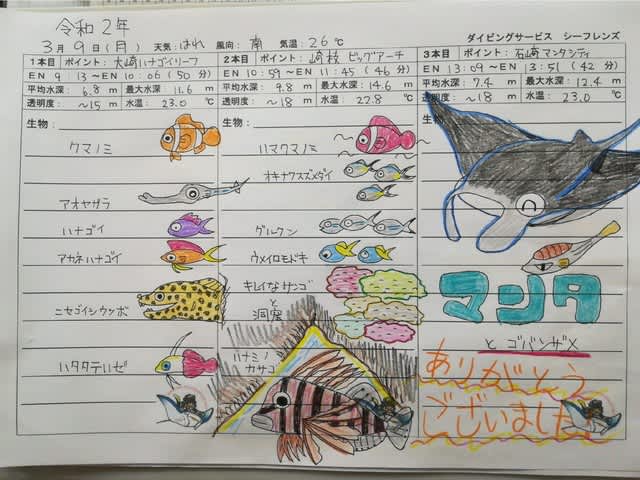 令和2年
3月9日(月) 天気:はれ 風向:南 気温:26℃
ダイビングサービス シーフレンズ
1本目 ポイント:大崎ハナゴイリーフ
EN 9:13〜EN 10:06 (50分)
平均水深:6.8 m 最大水深:11.6 m
透明度:〜15 m 水温:23.0 ℃
生物:
クマノミ
アオヤガラ
ハナゴイ
アカネハナゴイ
ニセゴイシウツボ
ハタタテハゼ
2本目 ポイント:崎枝ビッグアーチ
EN 10:59〜EN 11:45 (46分)
平均水深:9.8 m 最大水深:14.6 m
透明度:〜18 m 水温:22.8 ℃
生物:
ハマクマノミ
オキナワスズメダイ
グルクン
ウメイロモドキ
キレイなサンゴ
と
洞窟
ハナミノ
カサゴ
3本目 ポイント:石崎マンタシティ
EN 13:09〜EN 13:51 (42分)
平均水深:7.4 m 最大水深:12.4 m
透明度:〜18 m 水温:23.0 ℃
生物:
マンタ
と ゴバンザメ
ありがとう
ございました